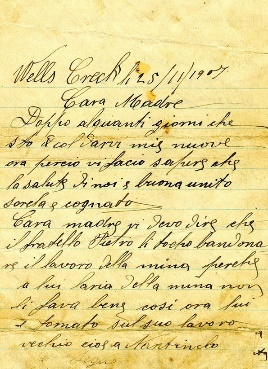 Wells Creek li 25/11/1907
Cara Madre
Doppo alquanti giorni che
sto
mie nuove
ora perciò vi facio sapere che
la salute di noi è buona unito
sorela e cognato
Cara madre vi devo dire che
il fratello Pietro li tocho bandona
re il lavoro della mina perche
a lui laria della mina non
li fava bene cosi ora lui
e tornato sul suo lavoro
vechio cioe a